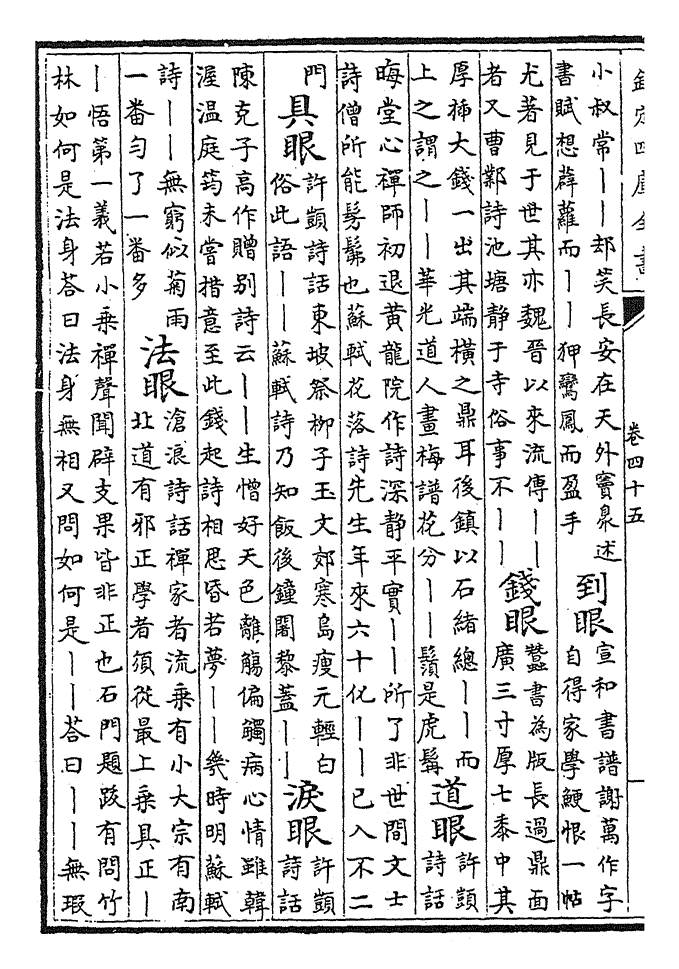 欽定四庫全書
卷四十五
小叔常丨丨却笑長安在天外竇臮述
書賦想薜蘿而丨丨狎鸞鳳而盈手
到眼
宣和書譜謝萬作字
自得家學鯁恨一帖
尤著見于世其亦魏晉以來流傳丨丨
者又曹鄴詩池塘静于寺俗事不丨丨
錢眼
蠶書為版長過鼎面
廣三寸厚七黍中其
厚揷大錢一出其端橫之鼎耳後鎮以石緒總丨丨而
上之謂之丨丨華光道人畫梅譜花分丨丨鬚是虎髯
道眼
許顗
詩話
晦堂心禪師初退黃龍院作詩深静平實丨丨所了非世間文士
詩僧所能髣髴也蘇軾花落詩先生年來六十化丨丨已入不二
門
具眼
許顗詩話東坡祭柳子玉文郊寒島瘦元輕白
俗此語丨丨蘇軾詩乃知飯後鐘闍黎蓋丨丨
淚眼
許顗
詩話
陳克子高作贈别詩云丨丨生憎好天色離觴偏觸病心情雖韓
偓温庭筠未嘗措意至此錢起詩相思昏若夢丨丨幾時明蘇軾
詩丨丨無窮似菊雨
一番匀了一番多
法眼
滄浪詩話禪家者流乘有小大宗有南
北道有邪正學者須從最上乘具正丨
丨悟第一義若小乘禪聲聞辟支果皆非正也石門題跋有問竹
林如何是法身荅曰法身無相又問如何是丨丨荅曰丨丨無瑕